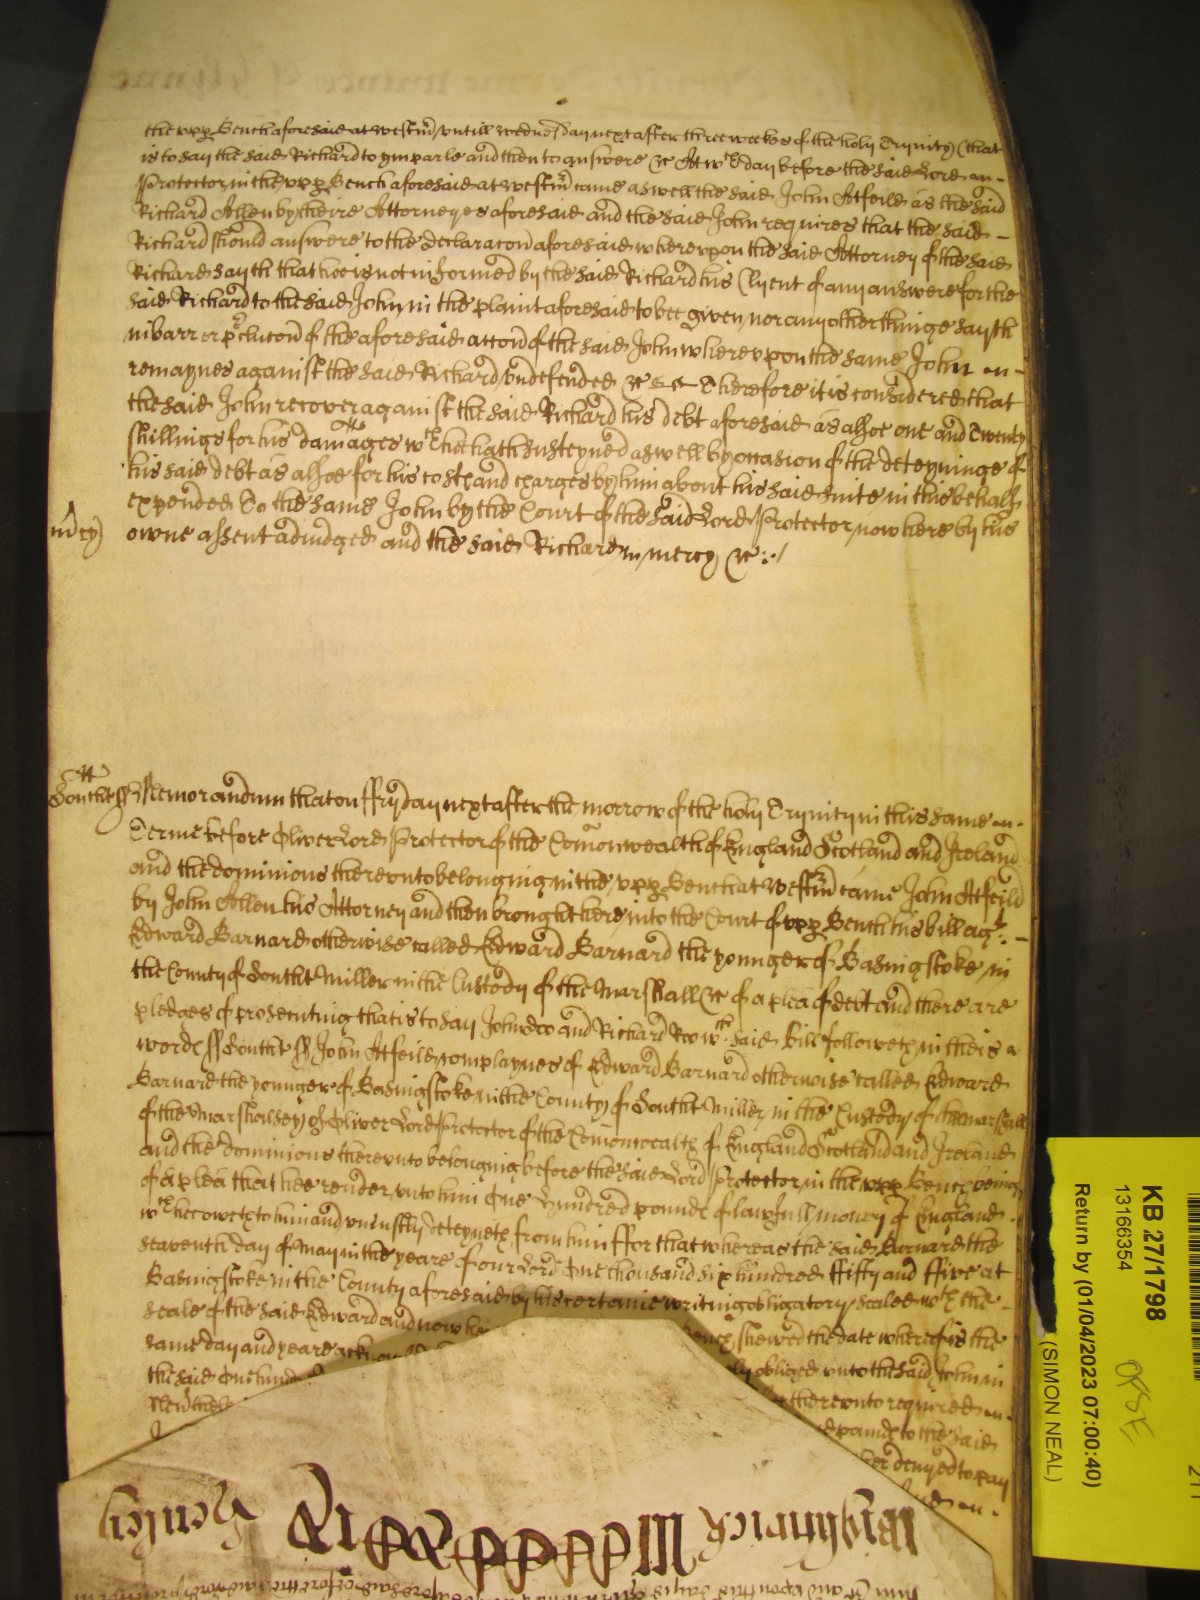 the upp Bench aforesaid at Westm untill Wednesday next after three weekes of the holy Trynity (that
is to say the said Richard to ymparle and then to answere &c At wch day before the said Lord
Protector in the upp Bench aforesaid at Westm came aswell the said John Atfeild as the said
Richard Allen by theire Attorneyes aforesaid and the said John requires that the said
Richard should answere to the declaracon aforesaid whereupon the said Attorney of the said
Richard sayth that hee is not informed by the said Richard his Clyent of any answere for the
said Richard to the said John in the plaint aforesaid to bee given, nor any other thinge sayth
in barr or pclucon of the aforesaid accon of the said John whereupon the same John
remaynes against the said Richard undefended &c Therefore it is considered that
the said John recover against the said Richard his debt aforesaid as alsoe one and Twenty
shillings for his damages wch hee hath susteyned aswell by occasion of the deteyninge of
his said debt as alsoe for his costs and charges by him about his said suite in this behalf
expended To the same John by the Court of the said Lord Protector now here by his
mcy
owne assent adiudged and the said Richard in mercy &c
Southt ss Memorandum that on ffryday next after the morrow of the holy Trynity in this same
Terme before Oliver Lord Protector of the Comonwealth of England Scotland and Ireland
and the dominions thereunto belonging in the upp Bench at Westm came John Atfeild
by John Allen his Attorney and then brought here into the Court of upp Bench his bill agt
Edward Barnard otherwise called Edward Barnard the younger of Basingstoke in
the County of Southt Miller in the Custody of the Marshall &c of a plea of debt and there are
pledges of prosecuting that is to say John doo and Richard Roo wch said Bill followeth in theis
words ss Southt ss John Atfeild complaynes of Edward Barnard otherwise called Edward
Barnard the younger of Basingstoke in the County of Southt Miller in the Custody of the marshall
of the Marshalsey of Oliver Lord Protector of the Comonwealth of England Scotland and Ireland
and the dominions thereunto belonging before the said Lord Protector in the upp Bench being
of a plea that hee render unto him One hundred pounds of lawfull money of England
wch hee oweth to him and uniustly deteyneth from him ffor that whereas the said Barnard the
seaventh day of May in the yeare of our Lord One thousand six hundred ffifty and ffive at
Basingstoke in the County aforesaid by his certaine writing obligatory sealed wth the
seale of the said Edward and now here shewed the date whereof is the
same day and yeare obliged unto the said John in
the said One hund thereunto required
pounds to the said
denyed to pay
KB 27/1798
13166354
Return by (01/04/2023 07:00:40)
(SIMON NEAL)